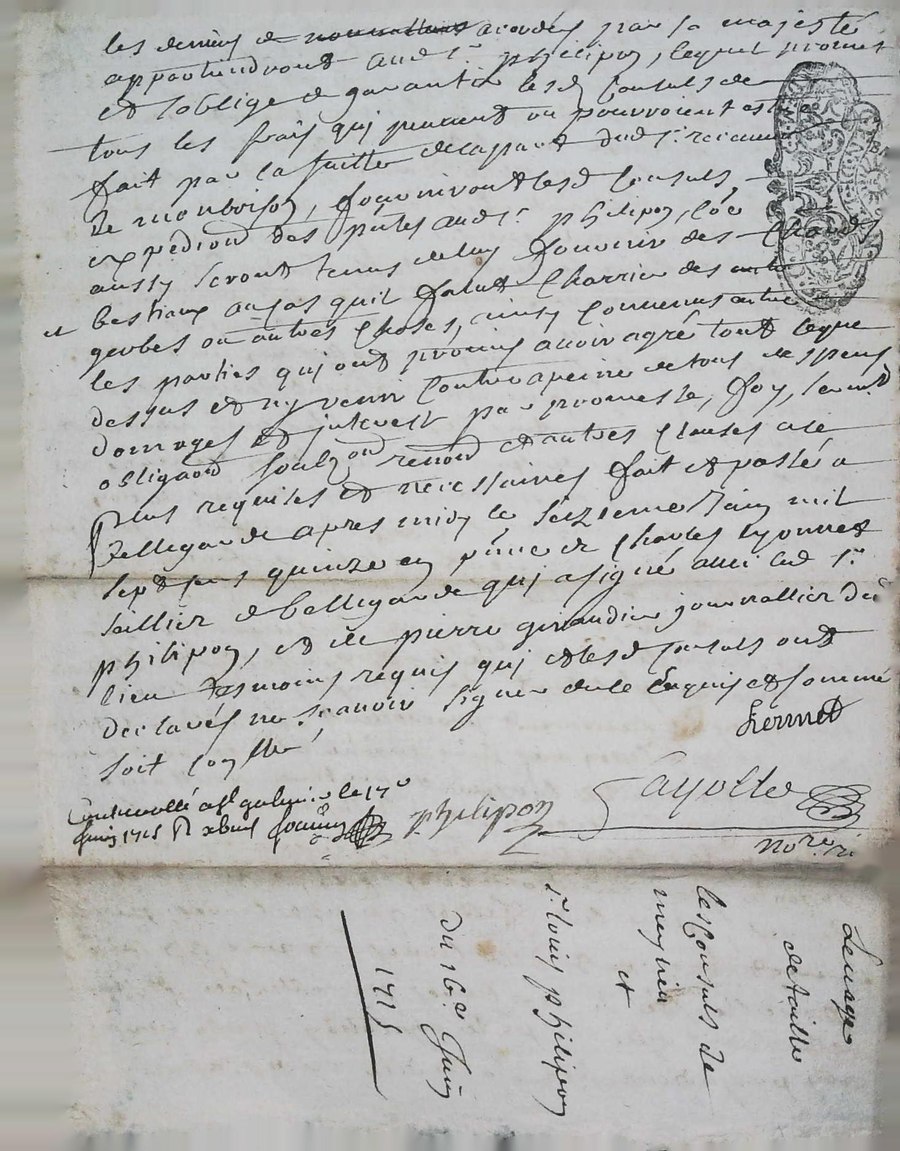 les deniers de nouvellans acordés par sa majesté
appartiendront aud sr philipon, lequel promet
et soblige de garantir lesd Consuls de
tous les frais qui peuvent ou pourroient estre
fait par la suitte de la part dud sr receveur
de monboison, fourniront lesd Consuls
expedion des pntes aud sr philipon,
aussy seront tenus de luy fournir des
bestiaux au cas quil falut Charrier des
et gerbes ou autres choses, ainsy Convenus entre
les parties qui ont promis avoir agré tout ce que
dessus et ny venir Contre a peine de tous despens
domages et interest par promesse, foy,
obligaon renon et autres Clauses a ce
plus requises et necessaires fait et passé a
Bellegarde apres midy le seizieme Juin mil
sept cens quinze en pnce de Charles Lyonnet
sellier de bellegarde qui a signé avec led sr
philipon, et de pierre giraudier journallier dud
lieu tesmoins requis qui et lesd Consuls ont
declarés ne scavoir signer de ce enquis et sommé
soit Conllé
Liennet
Controllé a st galmier le 17e
Juin 1715
philipon
Fayolle
nore
Leuage
de taille
les Consuls de
meynieu
et
sr louis philipon
du 16e Juin
1715